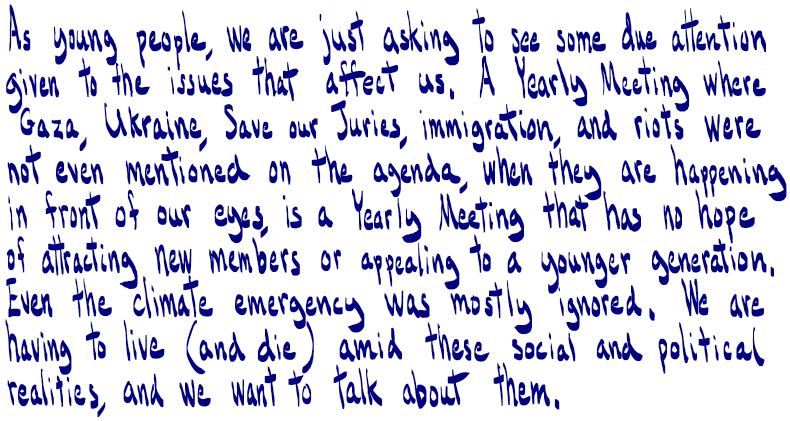 As young people, we are just asking to see some due attention
given to the issues that affect us. A Yearly Meeting where
Gaza, Ukraine, Save our Juries, immigration, and riots were
not even mentioned on the agenda, when they are happening
in front of our eyes, is a Yearly Meeting that has no hope
of attracting new members or appealing to a younger generation.
Even the climate emergency was mostly ignored. We are
having to live (and die) amid these social and political
realities, and we want to talk about them.